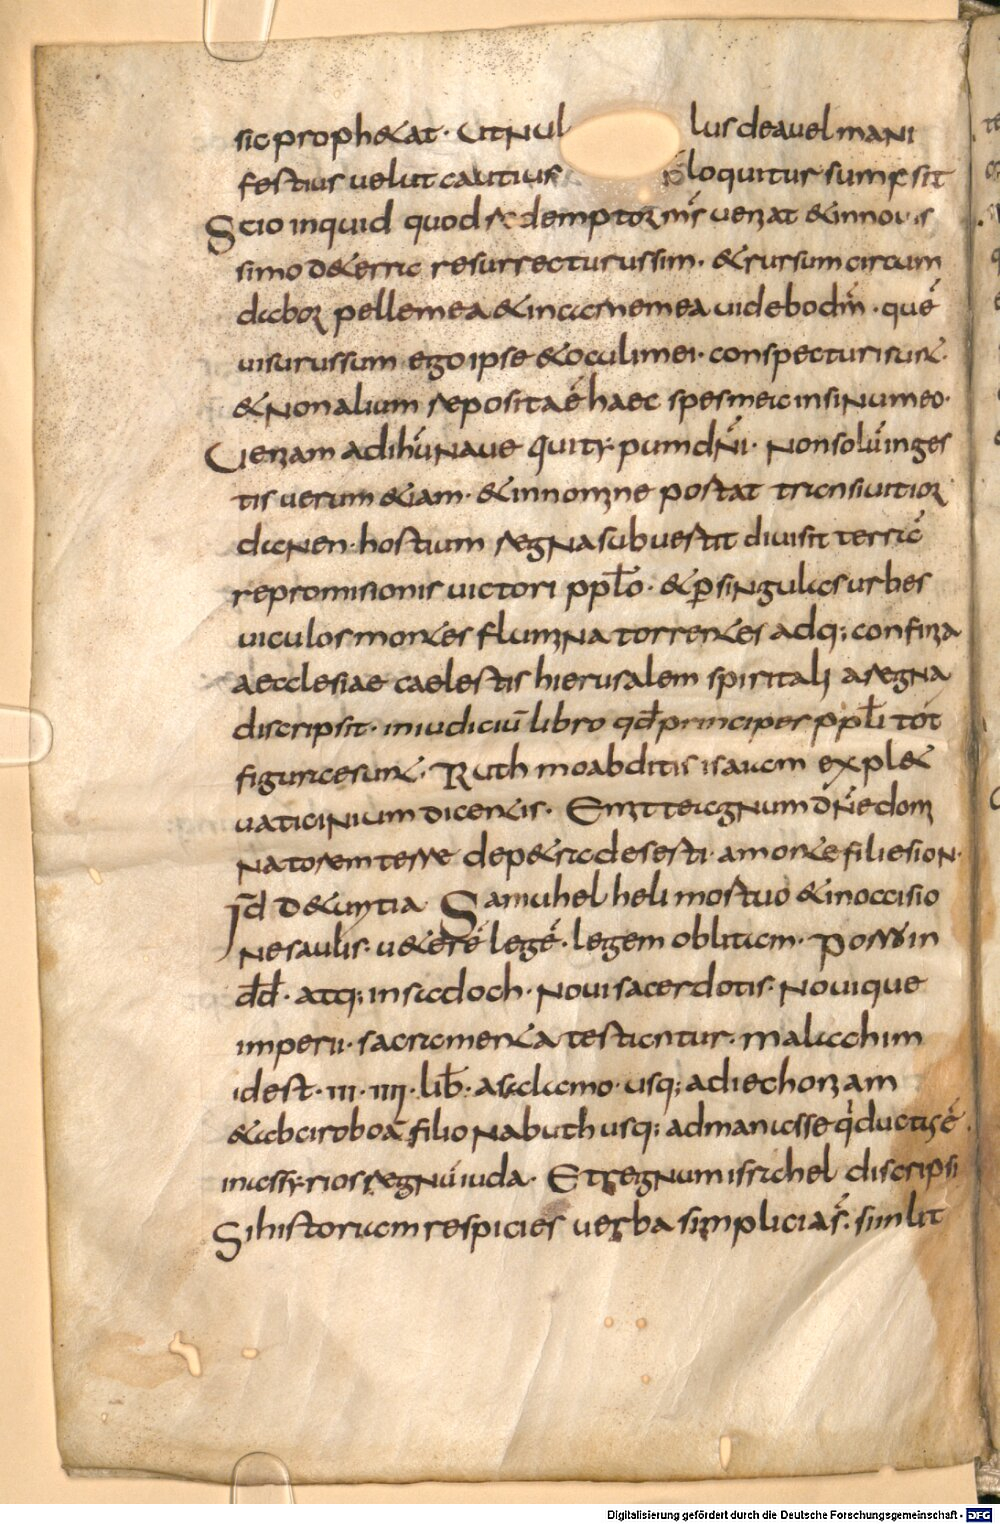 sic prophetat. Ut nul lus de a uel mani
festius uel ut cautius loquitur sumpsit
Scio inquid quod redemptor ms̄ ueniat & in nouis
simo de terra resurrecturus sim. & rursum circum
dabor pelle mea & in carne mea uidebo dm̄. quē
uisurus sum ego ipse & oculi mei. conspecturi sunt.
& non alium reposita ē haec spes mea in sinu meo.
Ueniam ad ihū naue qui typum dn̄i. non solū in ges
tis uerum etiam. & in nomine portat transiuit ior
danen. hostium regna subuertit diuisit terrā
repromisionis uictori pplo. & p singulas urbes
uiculos montes flumina torrentes adq; confinia
aecclesiae caelestis hierusalem spiritali a regna
discripsit. in iudiciū libro qd principes ppli tot
figurae sunt. Ruth moabditis isaiam explet
uaticinium dicentis. Emitte agnum dn̄e domi
natorem terre de petra deserti. a monte filie sion.
Samuhel heli mortuo & in occisio
ne saulis. ueterē legē. legem oblitam. Porro in
dd. atq; in sadoch. noui sacerdotis. nouique
imperii. sacramenta testantur. malachim
id est. iii. iiii. lib. a salamo. usq; ad iechoniam
& ab ciroboā filio nabuth usq; ad manasse q ductus ē.
in assyrios regnū iuda. Et regnum israhel discripsi
Si historiam respicies uerba simplicia s̄. si in lit